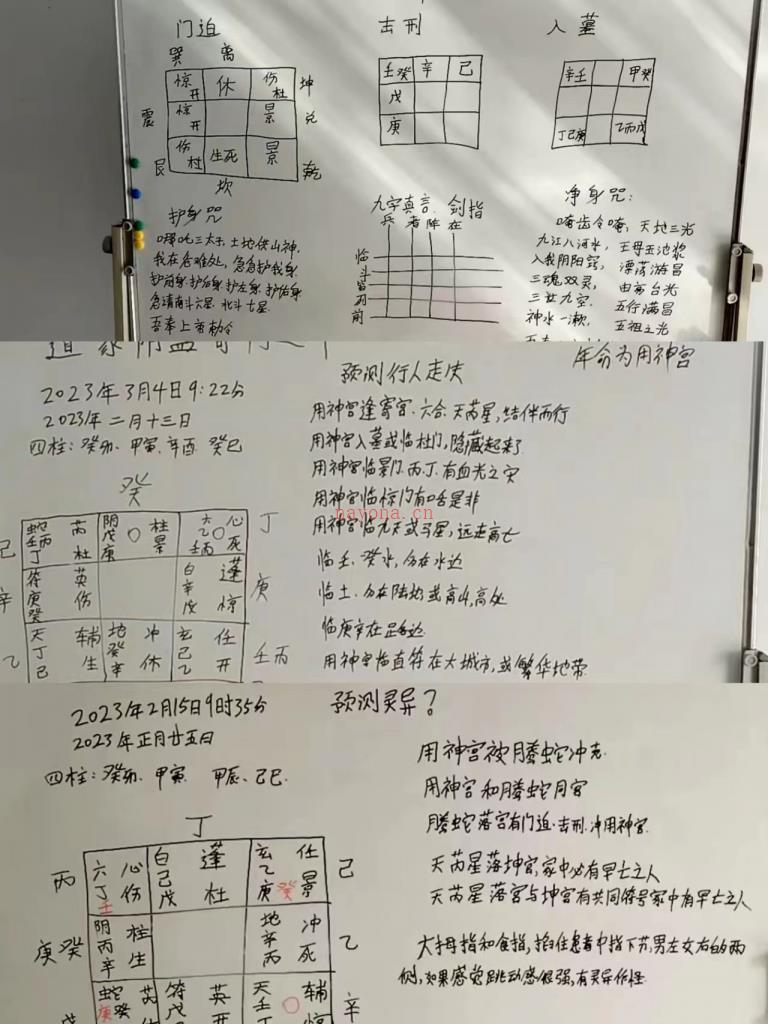 门迫
击刑
入墓
巽 离
惊开 休 伤杜 坤
震 惊开 景 兑
艮 伤杜 生死 景 乾
坎
壬癸 辛 己
戊
庚
辛壬 甲癸
丁己庚 乙丙戊
护身咒
土地供山神
我在危难处,急急护我身
护前身.护后身.护左身.护右身
急请南斗六星.北斗七星
吾奉上帝勅令
九字真言.剑指
兵 者 阵 在
临
斗
皆
列
前
净身咒:
天地三光
九江八河水,王母五池浆
入我阴阳窍,漂荡游昌
三魂双灵,
三世九空,五行满昌
神水一漱,五祖之光
年命为用神宫
2023年3月4日9:22分
2023年二月十三日
四柱:癸卯.甲寅.辛酉.癸巳
癸
蛇 芮 阴 柱 六 心 丁
己 壬丙 戊 乙
丁 杜 庚 景 壬丙 死
符 英 白 蓬
辛 庚 辛 庚
癸 伤 戊 惊
天 辅 地 冲 玄 任
乙 丁 癸 己 壬丙
己 生 辛 休 乙 开
预测行人走失
用神宫逢寄宫.六合.天芮星,结伴而行
用神宫入墓或临杜门,隐藏起来了
用神宫临景门.丙.丁.有血光之灾
用神宫临惊门有口舌是非
用神宫临九天或马星,远走高亡
临壬.癸水,份在水边
临土.份在陆地或高山,高处
临庚辛在
用神宫临直符在大城市,或繁华地带
nayona.cn
2023年2月15日9时35分
2023年正月廿五日
四柱:癸卯.甲寅 甲辰.己巳.
丁
六 心 白 蓬 玄 任
丙 丁 己 乙 己
壬 伤 戊 杜 庚 癸 景
阴 柱 地 冲
庚癸 丙 辛 乙
辛 生 丙 死
蛇 芮 符 英 天 辅
庚癸 戊 壬 辛
预测灵异?
用神宫被腾蛇冲克
用神宫和腾蛇同宫
腾蛇落宫有门迫.击刑.冲用神宫
天芮星落坤宫,家中必有早亡之人
天芮星落宫与坤宫有共同符号家中有早亡之人
大拇指和食指,掐住患者中指下节,男左女右的两
侧,如果感觉跳动感很强,有灵异作怪